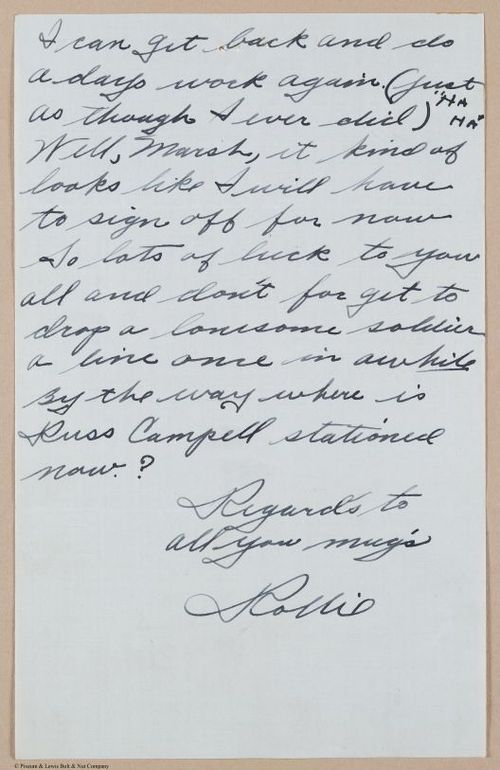 I can get back and do
a days work again. (just
as though I ever did) "HA
HA"
Well, Marsh, it kind of
looks like I will have
to sign off for now
So lots of luck to you
all and don't for get to
drop a lonesome soldier
a line once in awhile
By the way where is
Russ Campell stationed
now.?
Regards to
all you mug's
Rollie
© Pheoum & Lewis Bolt & Nut Company